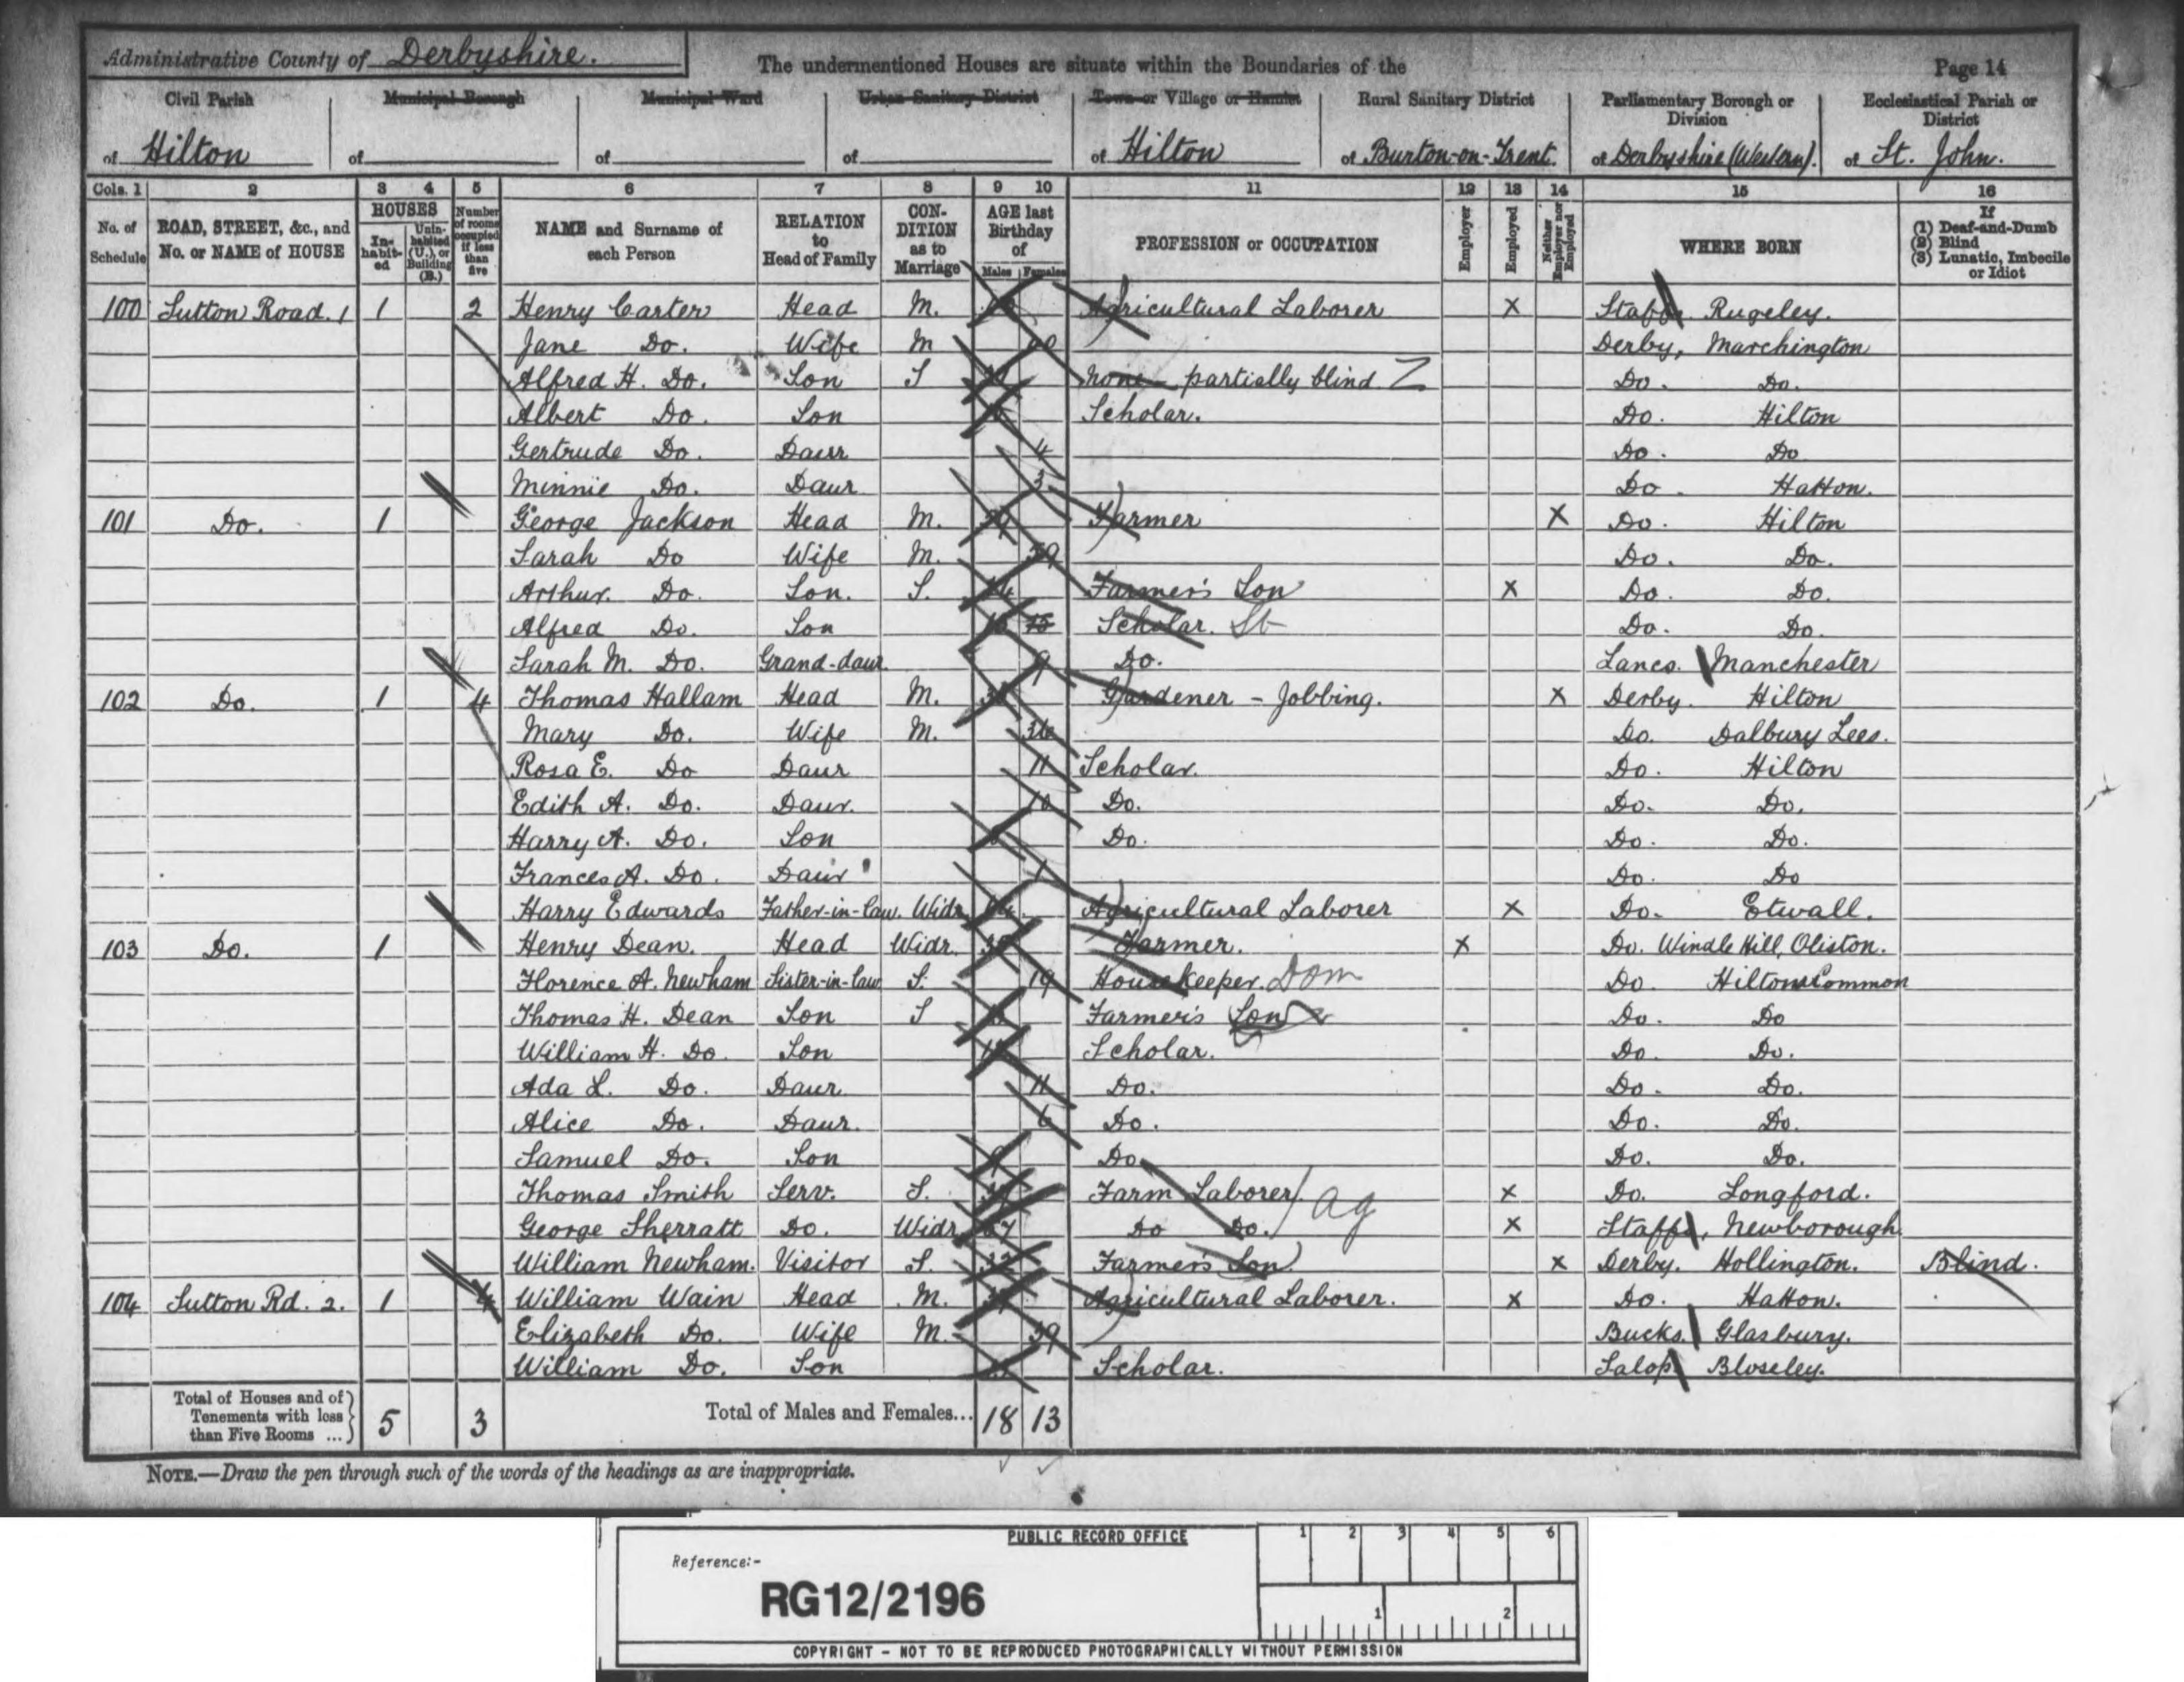 Administrative County of Derbyshire. The undermentioned Houses are situate within the Boundaries of the Page 14
Civil Parish Municipal Borough Municipal Ward Urban Sanitary District Town or Village or Hamlet Rural Sanitary District Parliamentary Borough or Division Ecclesiastical Parish or District
of Hilton of of of of Hilton of Burton-on-Trent. of Derbyshire (Western). of St. John.
Cols. 1 2 3 4 5 6 7 8 9 10 11 12 13 14 15 16
No. of Schedule ROAD, STREET, &c., and No. or NAME of HOUSE HOUSES Inhabited Uninhabited (U.), or Building (B.) Number of rooms occupied if less than five NAME and Surname of each Person RELATION to Head of Family CONDITION as to Marriage AGE last Birthday of Males Females PROFESSION or OCCUPATION Employer Employed Neither Employer nor Employed WHERE BORN If (1) Deaf-and-Dumb (2) Blind (3) Lunatic, Imbecile or Idiot
100 Sutton Road. 1 1 2 Henry Carter Head M. Agricultural Laborer X Staffs Rugeley.
Jane Do. Wife M Derby, Marchington
Alfred H. Do. Son S None partially blind Do. Do.
Albert Do. Son Scholar. Do. Hilton
Gertrude Do. Daur 4 Do. Do
Minnie Do. Daur 3 Do. Hatton.
101 Do. 1 George Jackson Head M. Farmer X Do. Hilton
Sarah Do Wife M. 59 Do. Do.
Arthur. Do. Son. S. Farmer's Son X Do. Do.
Alfred Do. Son Scholar. St Do. Do.
Sarah M. Do. Grand-daur. 9 Do. Lancs. Manchester
102 Do. 1 4 Thomas Hallam Head M. Gardener - Jobbing. X Derby. Hilton
Mary Do. Wife M. 36 Do. Dalbury Lees.
Rosa E. Do Daur 11 Scholar. Do. Hilton
Edith A. Do. Daur. 10 Do. Do. Do.
Harry A. Do. Son Do. Do. Do.
Frances A. Do. Daur 1 Do. Do
Harry Edwards Father-in-law. Widr. Agricultural Laborer X Do. Etwall.
103 Do. 1 Henry Dean. Head Widr. Farmer. X Do. Windle Hill, Oliston.
Florence A. Newham Sister-in-law S. 19 Housekeeper. Dom Do. Hilton Common
Thomas H. Dean Son S Farmer's Son Do. Do
William H. Do. Son Scholar. Do. Do.
Ada L. Do. Daur 11 Do. Do. Do.
Alice Do. Daur. 6 Do. Do. Do.
Samuel Do. Son 9 Do Do. Do.
Thomas Smith Serv. S. Farm Laborer X Do. Longford.
George Sherratt Do. Widr 27 Do Do. Ag X Staffs, Newborough
William Newham. Visitor S. Farmer's Son X Derby. Hollington. Blind.
104 Sutton Rd. 2. 1 4 William Wain Head M. Agricultural Laborer. X Do. Hatton.
Elizabeth Do. Wife M. 39 Bucks. Glasbury.
William Do. Son Scholar. Salop Bloseley.
Total of Houses and of Tenements with less than Five Rooms ... 5 3 Total of Males and Females... 18 13
NOTE.—Draw the pen through such of the words of the headings as are inappropriate.
PUBLIC RECORD OFFICE 1 2 3 4 5 6
Reference:-
RG12/2196
1 2
COPYRIGHT - NOT TO BE REPRODUCED PHOTOGRAPHICALLY WITHOUT PERMISSION